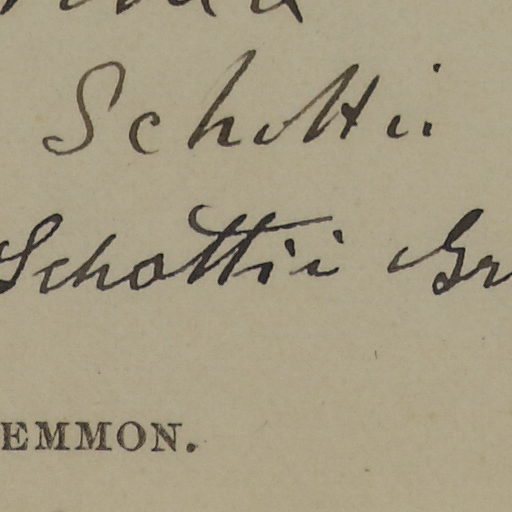 Schottii
Schottii Gr
EMMON.